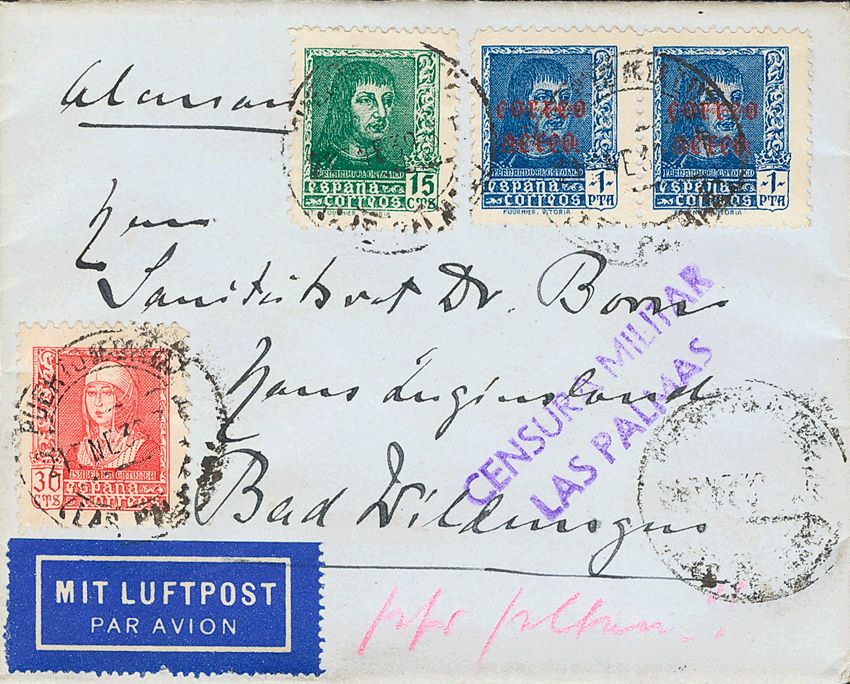 correo correo
aéreo aéreo
FERNANDO EL CATOLICO
ESPAÑA 15
CORREOS CTS
FOURNIER. VITORIA
FERNANDO EL CATOLICO
ESPAÑA -1-
CORREOS PTA
FOURNIER. VITORIA
FERNANDO EL CATOLICO
ESPAÑA -1-
CORREOS PTA
Herrn
Sanitätsrat Dr. Born
Haus Luginsland
Bad Wildungen
CENSURA MILITAR
LAS PALMAS
30 ISABEL LA CATOLICA
CTS ESPAÑA
CORREOS
MIT LUFTPOST
PAR AVION
sehr selten..!!